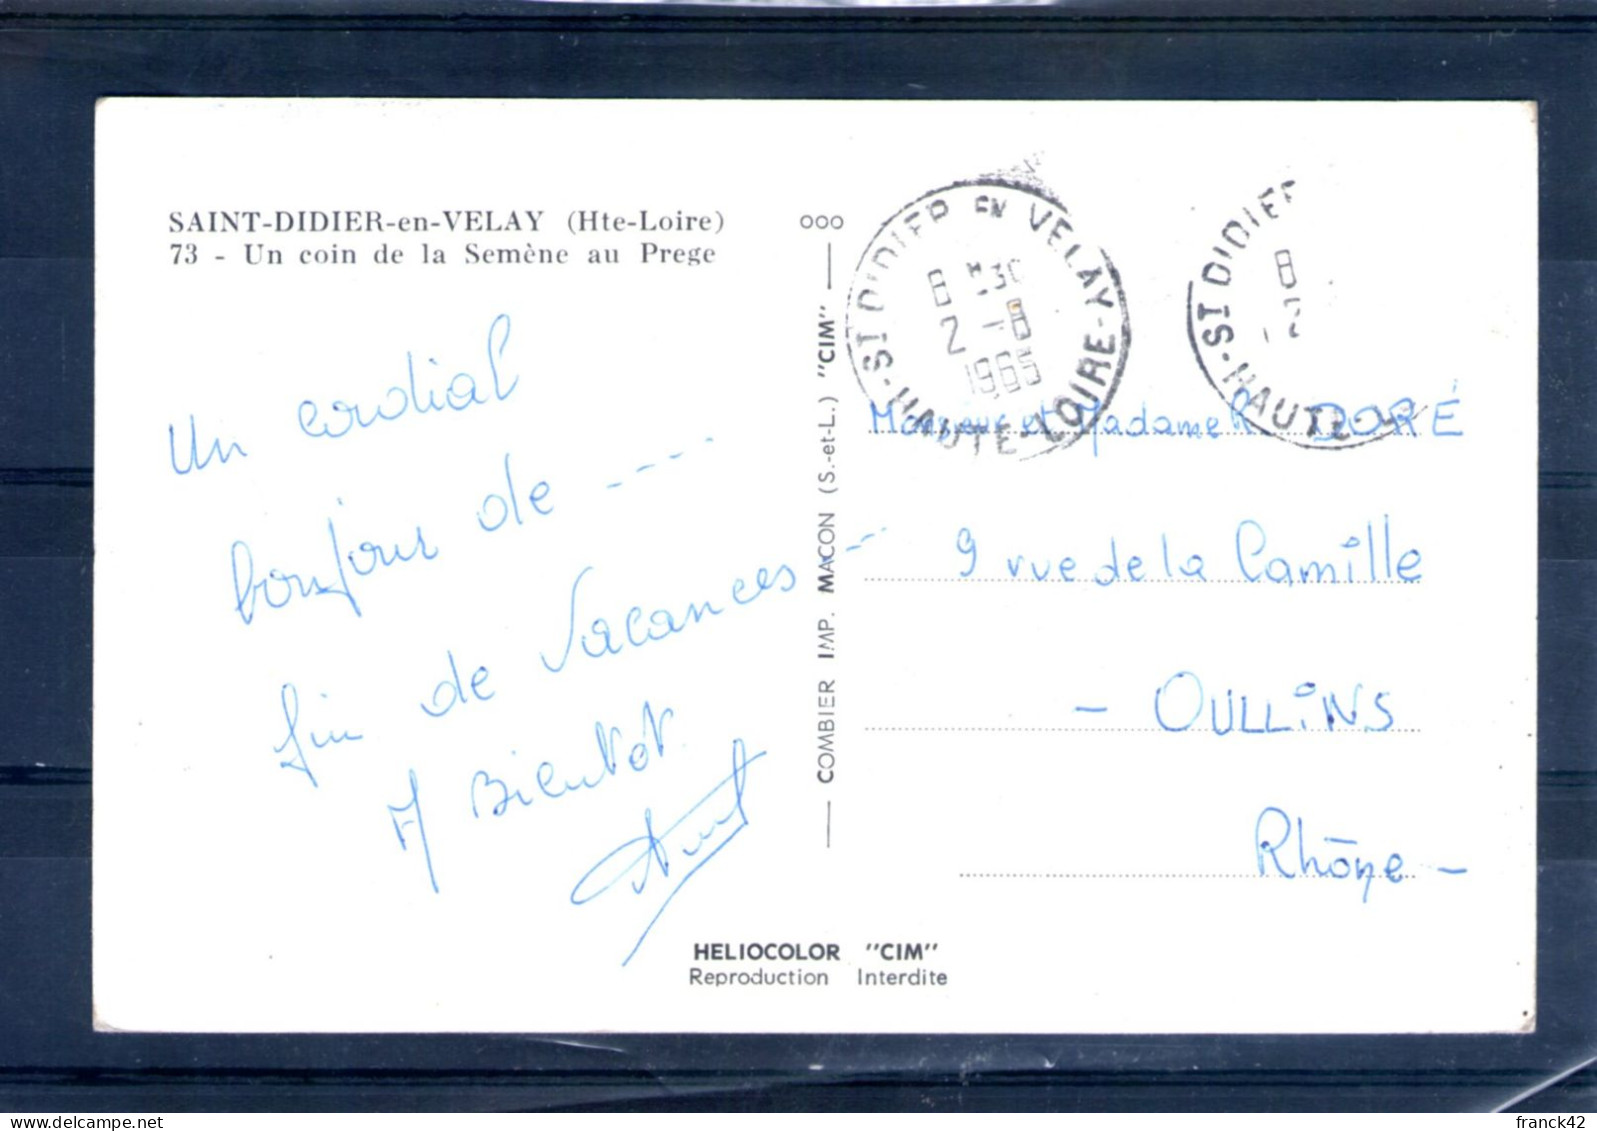 SAINT-DIDIER-en-VELAY (Hte-Loire)
73 - Un coin de la Semène au Prege
Un cordial
bonjour de ----
fin de Vacances --
A Bientôt
ooo
COMBIER IMP. MACON (S.-et-L.) "CIM"
ST DIDIER EN VELAY
HAUTE-LOIRE
2 -8
1965
ST DIDIER
HAUTE-L
8
Monsieur et Madame DORÉ
9 rue de la Camille
- OULLiNS
Rhône -
HELIOCOLOR "CIM"
Reproduction Interdite
franck42